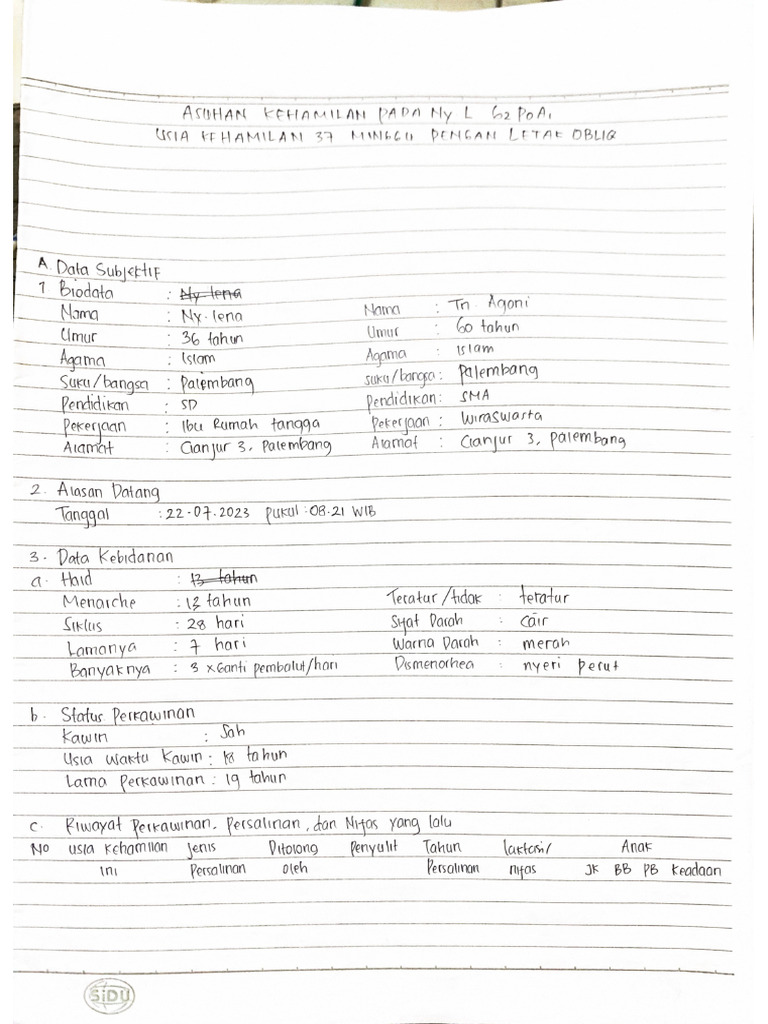 ASUHAN KEHAMILAN PADA NY L G2P0A1
USIA KEHAMILAN 37 MINGGU DENGAN LETAK OBLIQ
A. Data Subjektif
1 Biodata : Ny lena
Nama : Ny. lena Nama : Tn. Agani
Umur : 36 tahun Umur : 60 tahun
Agama : Islam Agama : islam
Suku/bangsa : Palembang suku/bangsa : Palembang
Pendidikan : SD Pendidikan : SMA
Pekerjaan : Ibu Rumah tangga Pekerjaan : Wiraswasta
Alamat : Cianjur 3, Palembang Alamat : Cianjur 3, Palembang
2. Alasan Datang
Tanggal : 22-07.2023 pukul : 08.21 WIB
3. Data Kebidanan
a. Haid : 13 tahun
Menarche : 13 tahun Teratur/tidak : teratur
Siklus : 28 hari Sifat Darah : cair
Lamanya : 7 hari Warna Darah : merah
Banyaknya : 3 x Ganti pembalut/hari Dismenorhea : nyeri perut
b. Status Perkawinan
Kawin : Sah
Usia Waktu Kawin : 18 tahun
Lama Perkawinan : 19 tahun
c. Riwayat Perkawinan, Persalinan, dan Nifas yang lalu
No usia kehamilan jenis Ditolong Penyulit Tahun laktasi/ Anak
ini Persalinan oleh Persalinan nifas JK BB PB Keadaan
SiDU